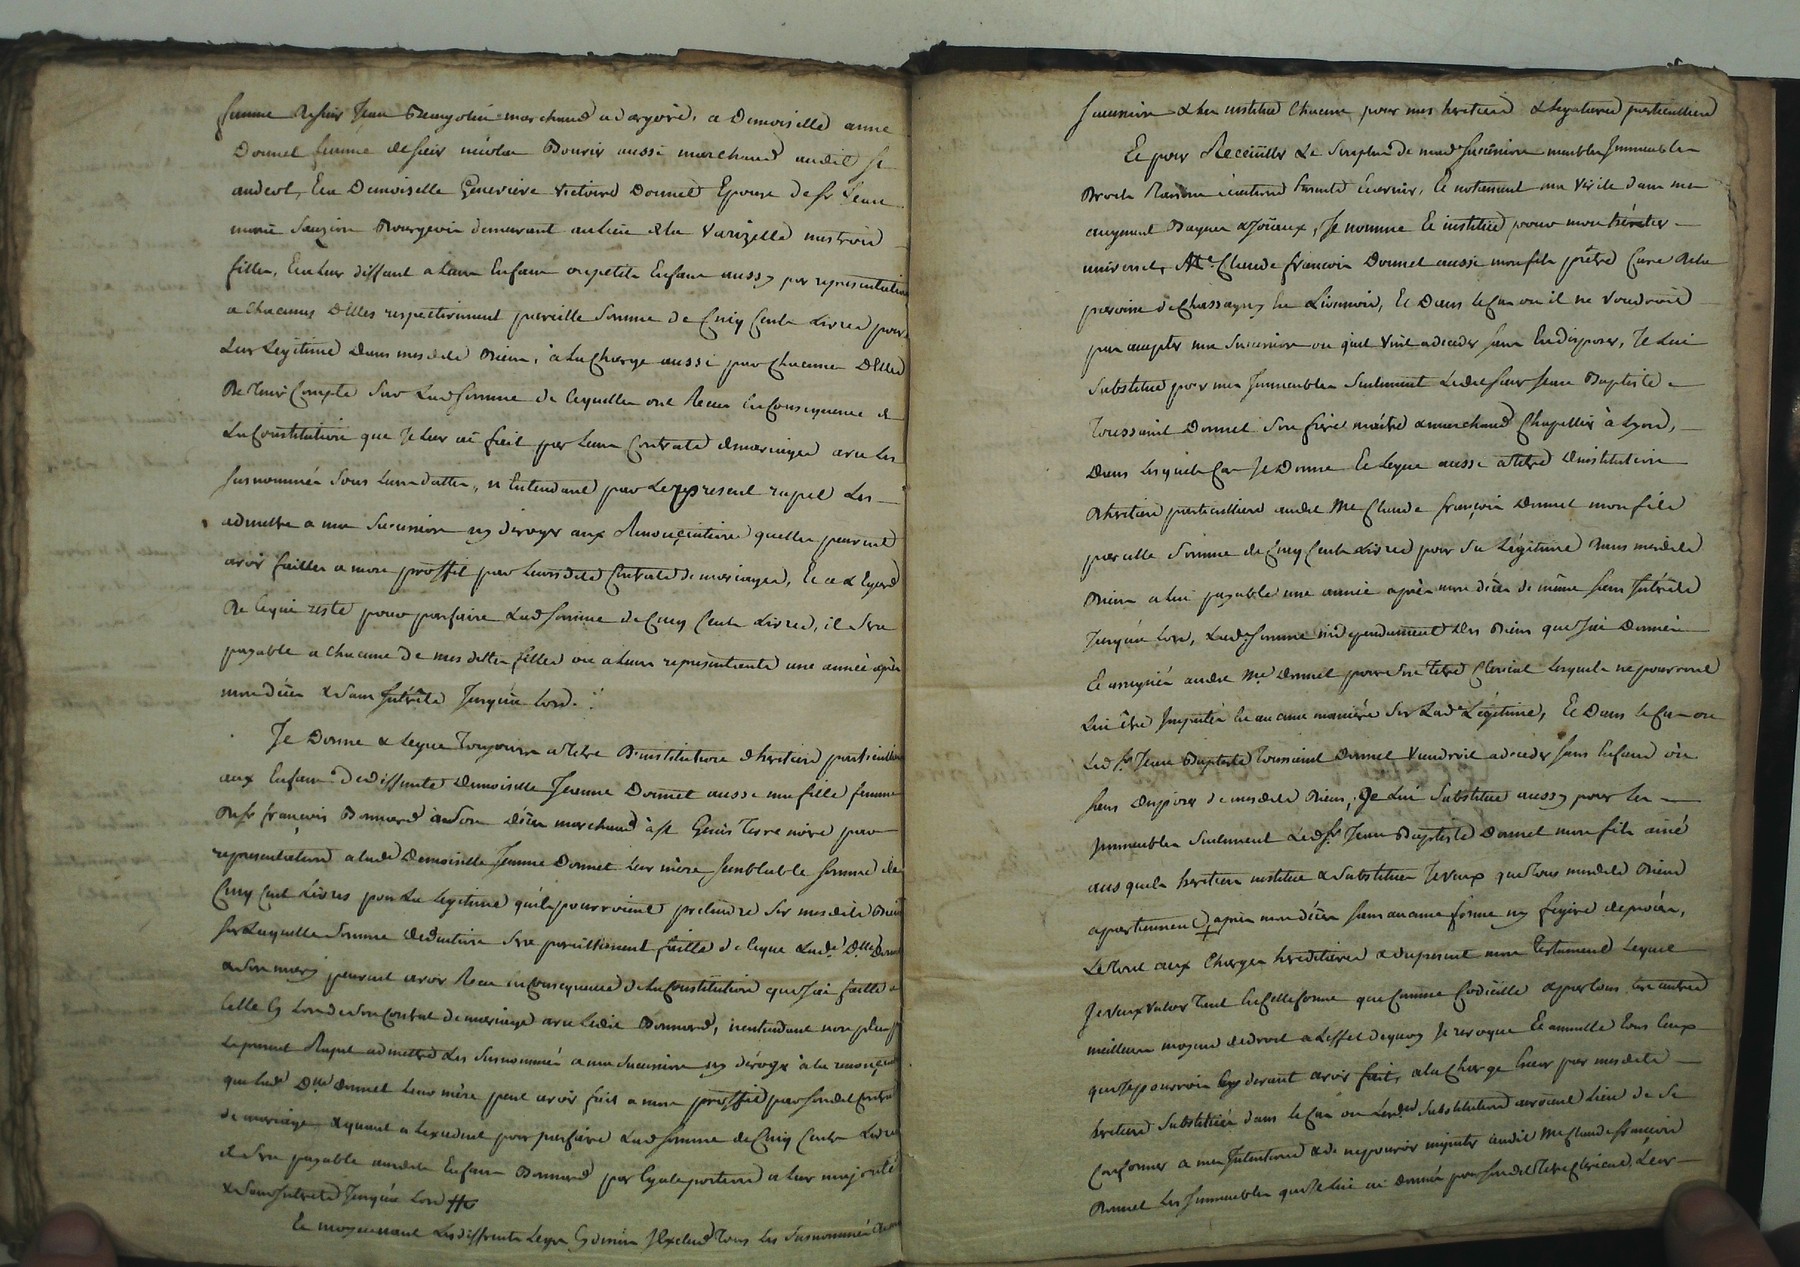 femme de sieur Jean marchand a d'argoire, a Demoiselle anne
Donnet femme de sieur nicolas Bouvier aussi marchand audit St
andeol, Et a Demoiselle Genevieve victoire Donnet Epouse de Sr Jean
marie Bourgeois demeurant au lieu de la Varizelle mes trois
filles, Et a leur deffaut a leurs Enfans ou petits Enfans aussy par representation
a chacunes D'Elles respectivement pareille Somme de Cinq Cents Livres pour
Leur Legitime Dans mesdits Biens, à la Charge aussi par Chacune D'Elles
De tenir Compte Sur Lad. Somme de Ce qu'elles ont Receu En Consequence de
La Constitution que Je Leur ai fait par Leurs Contrats de mariages avec Les
Susnommés Sous Leurs dattes, n'Entendant par Le present rapel Les
admettre a ma Succession ny déroger aux Renonciations qu'elles peuvent
avoir faittes a mon proffit par Leursdits Contrats de mariages, Et a L'Egard
De Ce qui reste pour parfaire Lad. Somme de Cinq Cents Livres, il Sera
payable a Chacune de mes dittes filles ou a Leurs representants une année après
mon décès & Sans Intérêts Jusqu'à Lors.
Je Donne & Legue Toujours a Titre D'institution d'heritiers particuliers
aux Enfans de deffunte Demoiselle Jeanne Donnet aussi ma fille femme
de Sr françois Bonnard à Son décès marchand à St Genis Terre noire par
representation a lade Demoiselle Jeanne Donnet Leur mère Semblable Somme de
Cinq Cent Livres pour La Legitime qu'ils pourroient prétendre Sur mesdits Biens
Sur Laquelle Somme deduction Sera pareillement faitte de Ce que Lade Dlle Donnet
& Son mary peuvent avoir Receu en Consequence de La Constitution que J'ai faitte a
Celle Cy Lors de Son Contrat de mariage avec Ledit Bonnard, n'entendant non plus par
Le present Rapel admettre Les Susnommés a ma Succession ny déroger à la renonciation
que lade Dlle Donnet Leur mère peut avoir fait a mon proffit par Sondit Contrat
de mariage & quant a L'excedent pour parfaire Lad. Somme de Cinq Cents Livres
il Sera payable auxdits Enfans Bonnard par Egale portion a Leur majorité
& Sans Intérêts Jusqu'à Lors
Et moyennant Les differents Legs Cy dessus J'Exclus Tous Les Susnommés de ma
Succession & Les institue Chacun pour mes heritiers & Legataires particuliers
Et pour Recueillir Le Surplus de mad. Succession meubles Immeubles
Droits Raisons actions et notament ma Virile dans mon
augment Bagues & Joüaux, Je nomme Et institue pour mon héritier
universel, Me Claude françois Donnet aussi mon fils prêtre Curé de la
paroisse de Chassagny En Lionnois, Et Dans le Cas ou il ne Voudroit
pas accepter ma Succession ou qu'il Vint a deceder Sans En disposer, Je Lui
Substitue pour mes Immeubles Seulement Ledit Sieur Jean Baptiste
Toussaint Donnet Son frère maitre & marchand Chapellier à Lyon,
Dans Lesquels Cas Je Donne Et Legue aussi a titre D'institution
D'heritier particulier audit Me Claude françois Donnet mon fils
pareille Somme de Cinq Cents Livres pour Sa Légitime Dans mesdits
Biens a lui payable une année après mon décès de même Sans Intérêts
Jusqu'à Lors, Lade Somme independament Des Biens que J'ai Donnés
Et assignés audit Me Donnet pour Son titre Clerical Lesquels ne pourront
Lui être Imputés En aucune manière Sur Lade Légitime, Et Dans le Cas ou
Led. Sr Jean Baptiste Toussaint Donnet Viendroit a deceder Sans Enfans où
Sans disposer de mesdits Biens, Je Lui Substitue aussy pour Les
Immeubles Seulement Led. Sr Jean Baptiste Donnet mon fils ainé
auxquels heritiers institués & Substitués Je veux que Tous mesdits Biens
apartiennent après mon décès Sans aucune forme ny figure de procès,
Le Tout aux Charges hereditaires & du present mon Testament Lequel
Je veux valoir Tant En Cette forme que Comme Codicille & par Tous Les autres
meilleurs moyens de droit a L'effet de quoy Je revoque Et annulle Tous Ceux
que Je pourrois Cy devant avoir fait, a la Charge Encor par mesdits
heritiers Substitués dans le Cas ou Lesd. Substitutions auroient Lieu de Se
Conformer a mes Intentions & de ne pouvoir imputer audit Me Claude françois
Donnet Les Immeubles que Je lui ai Donnés pour Sondit Titre Clerical, Leur